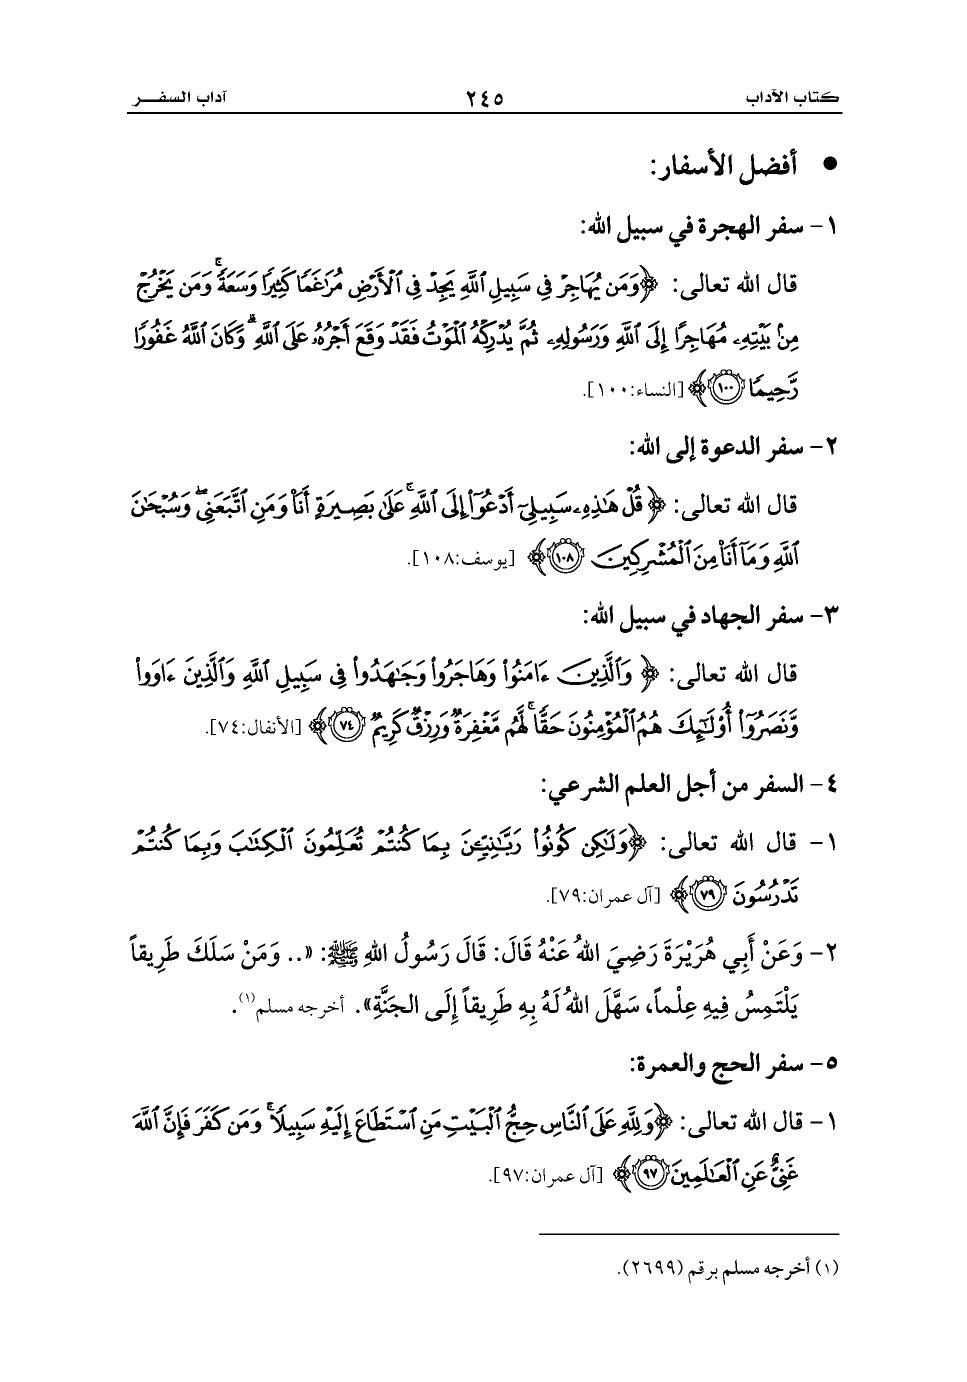 كتاب الآداب ٢٤٥ آداب السفر
● أفضل الأسفار:
١- سفر الهجرة في سبيل الله:
قال الله تعالى: ﴿وَمَن يُهَاجِرْ فِي سَبِيلِ ٱللَّهِ يَجِدْ فِي ٱلْأَرْضِ مُرَٰغَمًا كَثِيرًا وَسَعَةً ۚ وَمَن يَخْرُجْ
مِنۢ بَيْتِهِۦ مُهَاجِرًا إِلَى ٱللَّهِ وَرَسُولِهِۦ ثُمَّ يُدْرِكْهُ ٱلْمَوْتُ فَقَدْ وَقَعَ أَجْرُهُۥ عَلَى ٱللَّهِ ۗ وَكَانَ ٱللَّهُ غَفُورًا
رَّحِيمًا ١٠٠﴾ [النساء:١٠٠].
٢- سفر الدعوة إلى الله:
قال الله تعالى: ﴿قُلْ هَٰذِهِۦ سَبِيلِيٓ أَدْعُوٓا۟ إِلَى ٱللَّهِ ۚ عَلَىٰ بَصِيرَةٍ أَنَا۠ وَمَنِ ٱتَّبَعَنِي ۖ وَسُبْحَٰنَ
ٱللَّهِ وَمَآ أَنَا۠ مِنَ ٱلْمُشْرِكِينَ ١٠٨﴾ [يوسف:١٠٨].
٣- سفر الجهاد في سبيل الله:
قال الله تعالى: ﴿وَٱلَّذِينَ ءَامَنُوا۟ وَهَاجَرُوا۟ وَجَٰهَدُوا۟ فِي سَبِيلِ ٱللَّهِ وَٱلَّذِينَ ءَاوَوا۟
وَّنَصَرُوٓا۟ أُو۟لَٰٓئِكَ هُمُ ٱلْمُؤْمِنُونَ حَقًّا ۚ لَّهُم مَّغْفِرَةٌ وَرِزْقٌ كَرِيمٌ ٧٤﴾ [الأنفال:٧٤].
٤- السفر من أجل العلم الشرعي:
١- قال الله تعالى: ﴿وَلَٰكِن كُونُوا۟ رَبَّٰنِيِّـۧنَ بِمَا كُنتُمْ تُعَلِّمُونَ ٱلْكِتَٰبَ وَبِمَا كُنتُمْ
تَدْرُسُونَ ٧٩﴾ [آل عمران:٧٩].
٢- وَعَنْ أَبِي هُرَيْرَةَ رَضِيَ اللهُ عَنْهُ قَالَ: قَالَ رَسُولُ اللهِ ﷺ: «.. وَمَنْ سَلَكَ طَرِيقاً
يَلْتَمِسُ فِيهِ عِلْماً، سَهَّلَ اللهُ لَهُ بِهِ طَرِيقاً إِلَى الجَنَّةِ». أخرجه مسلم(١).
٥- سفر الحج والعمرة:
١- قال الله تعالى: ﴿وَلِلَّهِ عَلَى ٱلنَّاسِ حِجُّ ٱلْبَيْتِ مَنِ ٱسْتَطَاعَ إِلَيْهِ سَبِيلًا ۚ وَمَن كَفَرَ فَإِنَّ ٱللَّهَ
غَنِيٌّ عَنِ ٱلْعَٰلَمِينَ ٩٧﴾ [آل عمران:٩٧].
(١) أخرجه مسلم برقم (٢٦٩٩).